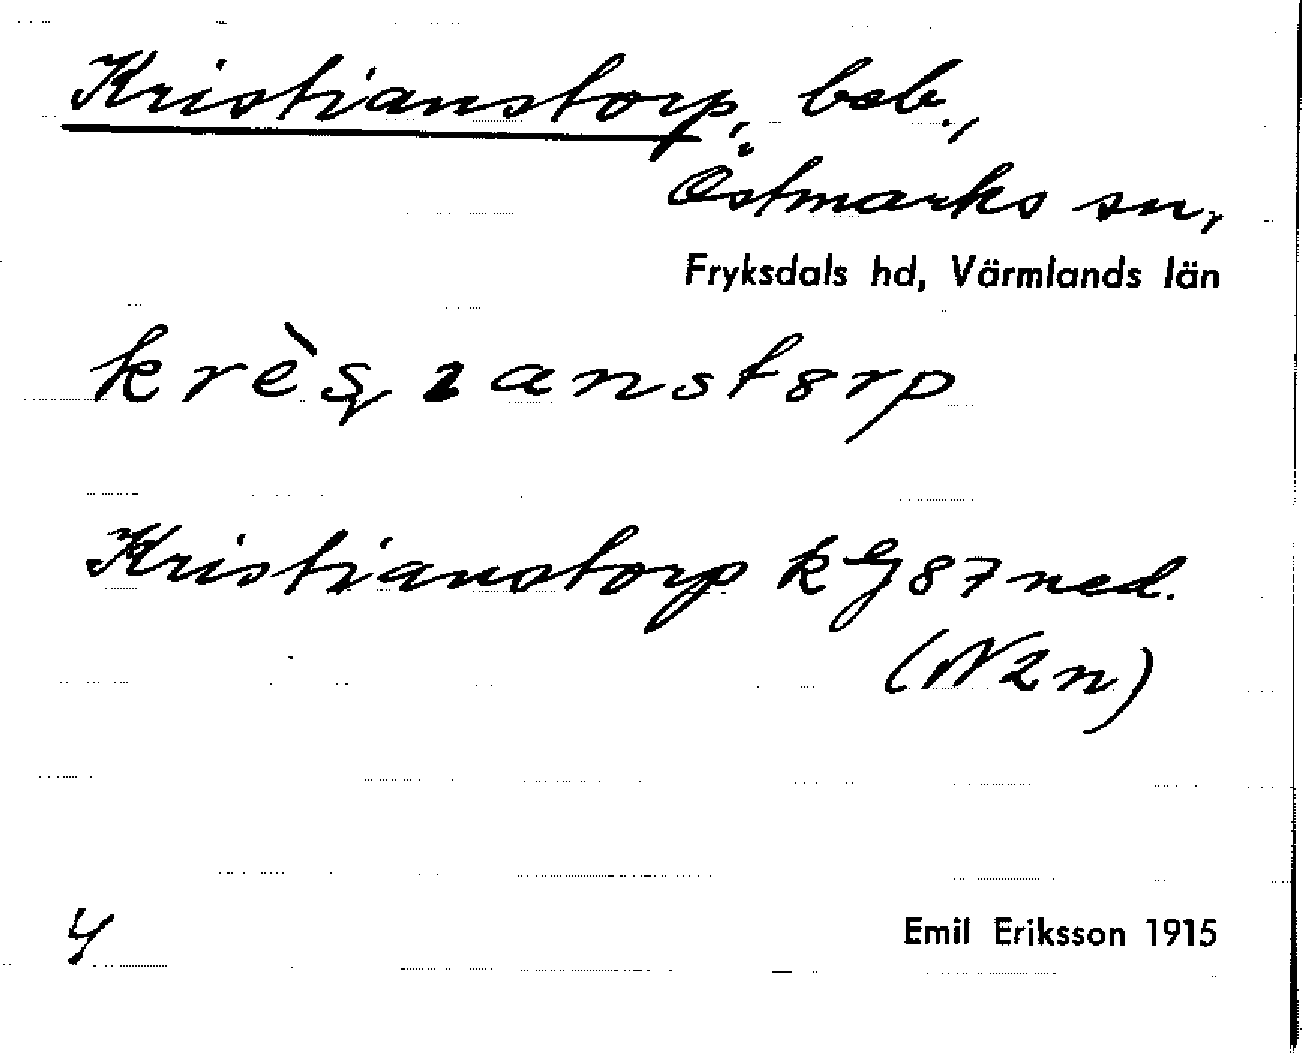 Kristianstorp, beb.,
Östmarks sn,
Fryksdals hd, Värmlands län
Kristianstorp k GJ 87 ned.
(N2n)
4
Emil Eriksson 1915